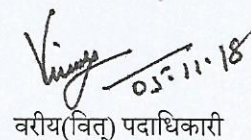 05.11.18
वरीय(वित्) पदाधिकारी